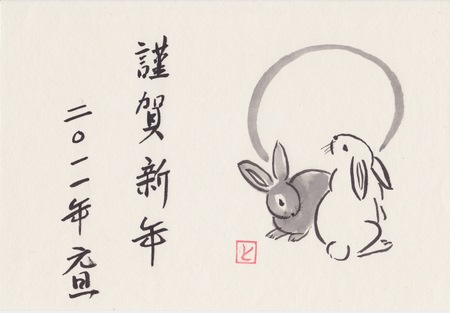 謹賀新年
二〇一一年 元旦
と